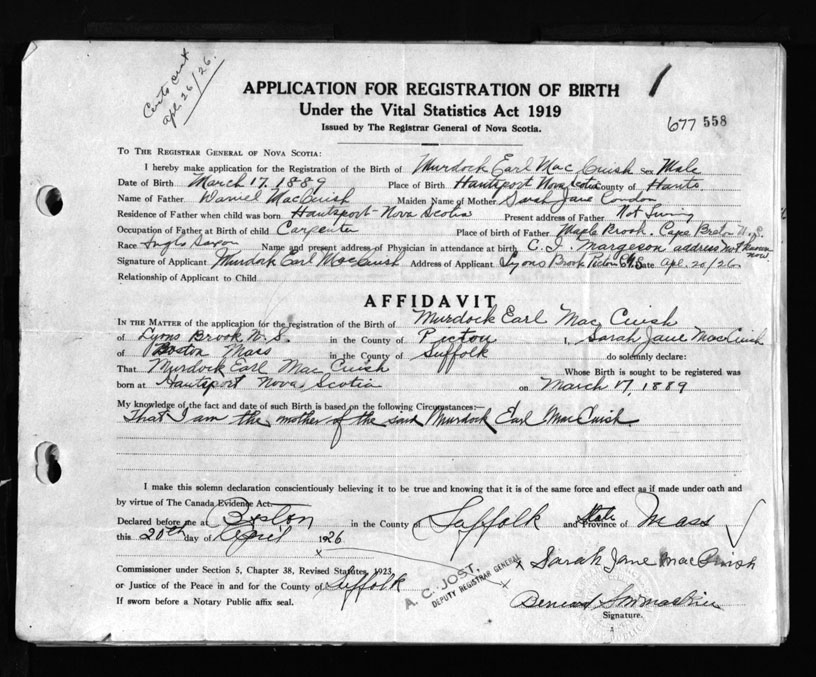 Certs sent
Apl. 26/26.
APPLICATION FOR REGISTRATION OF BIRTH
1
Under the Vital Statistics Act 1919
677 558
Issued by The Registrar General of Nova Scotia.
TO THE REGISTRAR GENERAL OF NOVA SCOTIA:
I hereby make application for the Registration of the Birth of Murdock Earl MacCuish sex Male
Date of Birth March 17, 1889 Place of Birth Hantsport Nova Scotia County of Hants.
Name of Father Daniel MacCuish Maiden Name of Mother Sarah Jane Condon
Residence of Father when child was born Hantsport - Nova Scotia Present address of Father Not Living
Occupation of Father at Birth of child Carpenter Place of birth of Father Maple Brook. Cape Breton N.S.
Race Anglo Saxon Name and present address of Physician in attendance at birth C. I. Margeson address not known now
Signature of Applicant Murdock Earl MacCuish Address of Applicant Lyons Brook Pictou Date Apl. 20/26
Relationship of Applicant to Child
AFFIDAVIT
IN THE MATTER of the application for the registration of the Birth of Murdock Earl Mac Cuish
of Lyons Brook N.S. in the County of Pictou I, Sarah Jane MacCuish
of Boston Mass in the County of Suffolk do solemnly declare:
That Murdock Earl Mac Cuish Whose Birth is sought to be registered was
born at Hantsport Nova Scotia on March 17, 1889
My knowledge of the fact and date of such Birth is based on the following Circumstances:—
That I am the mother of the said Murdock Earl MacCuish.
I make this solemn declaration conscientiously believing it to be true and knowing that it is of the same force and effect as if made under oath and
by virtue of The Canada Evidence Act.
Declared before me at Boston in the County of Suffolk and State Province of Mass
this 20th day of April 1926
x Sarah Jane MacCuish
Commissioner under Section 5, Chapter 38, Revised Statutes, 1923,
or Justice of the Peace in and for the County of Suffolk
A. C. JOST,
DEPUTY REGISTRAR GENERAL
If sworn before a Notary Public affix seal.
Signature.